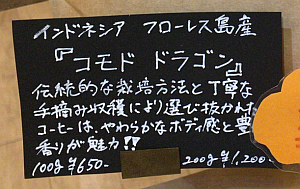 インドネシア フローレス島産
『コモド ドラゴン』
伝統的な栽培方法と丁寧な
手摘み収穫により選び抜かれた
コーヒーは、やわらかなボディ感と豊
香りが魅力!!
100g ¥650- 200g ¥1,200-